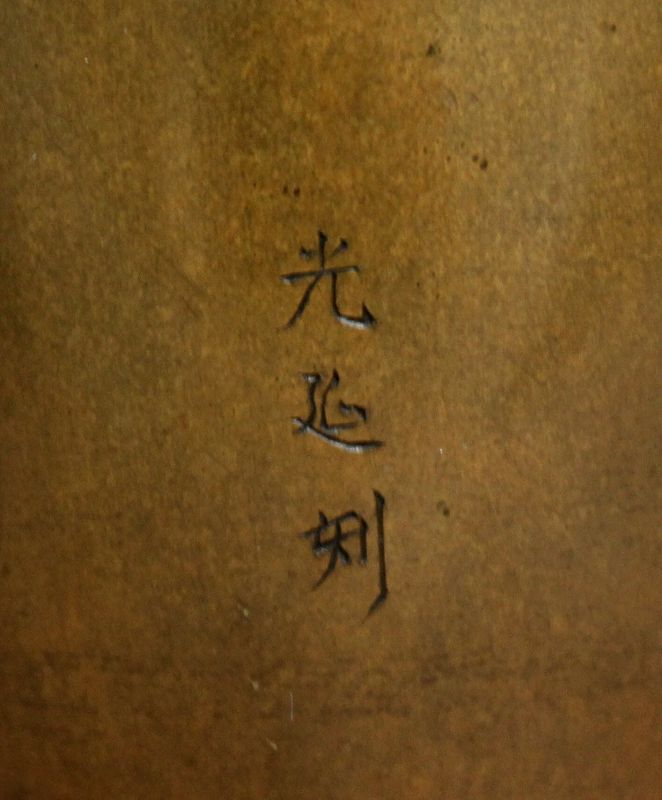 光延刻